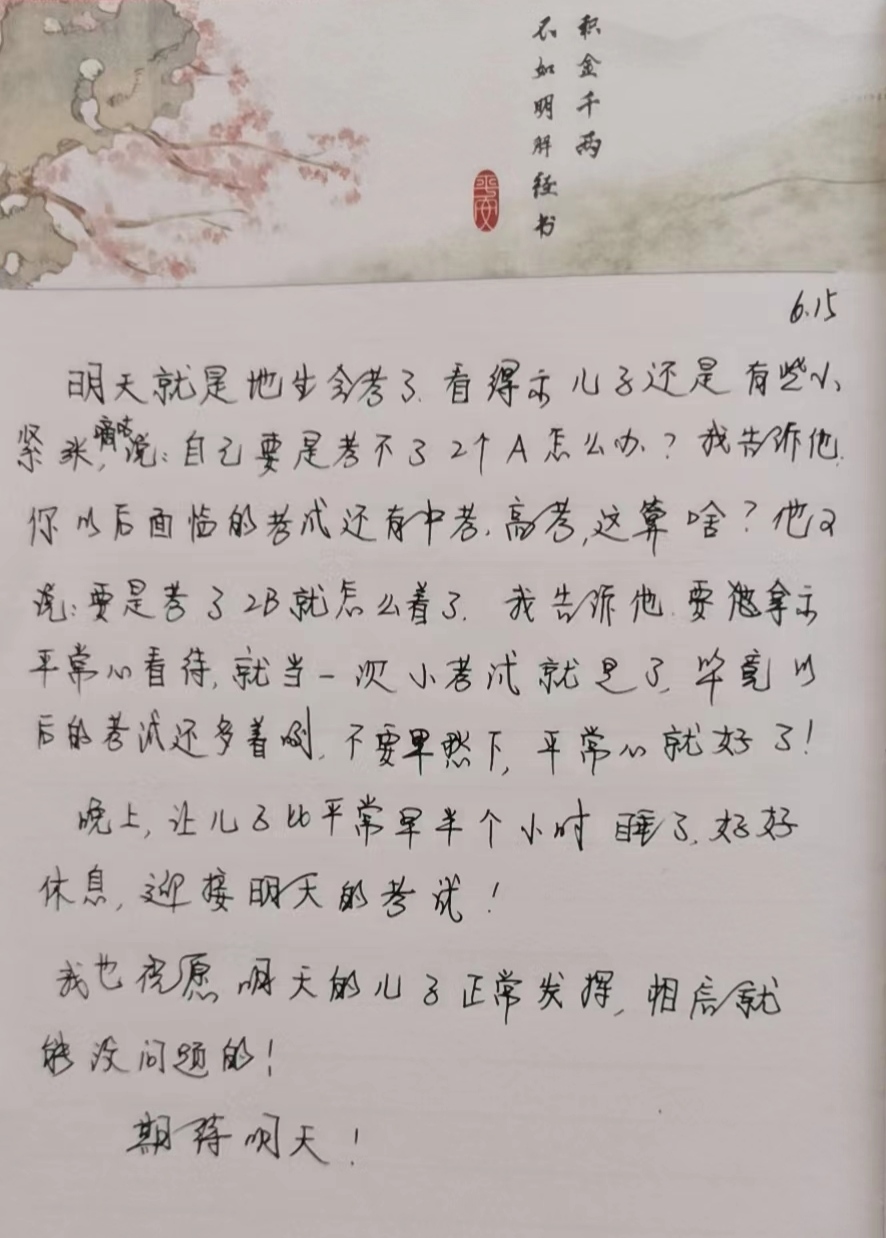 积金千两
不如明解经书
平安
6.15
明天就是地生会考了.看得出儿子还是有些小
紧张,嘀咕说:自己要是考不了2个A怎么办?我告诉他.
你以后面临的考试还有中考.高考,这算啥?他又
说:要是考了2B就怎么着了.我告诉他.要拿出
平常心看待,就当一次小考试就是了,毕竟以
后的考试还多着咧.不要早愁下,平常心就好了!
晚上,让儿子比平常早半个小时睡了,好好
休息,迎接明天的考试!
我也祝愿明天的儿子正常发挥,相信就
能没问题的!
期待明天!